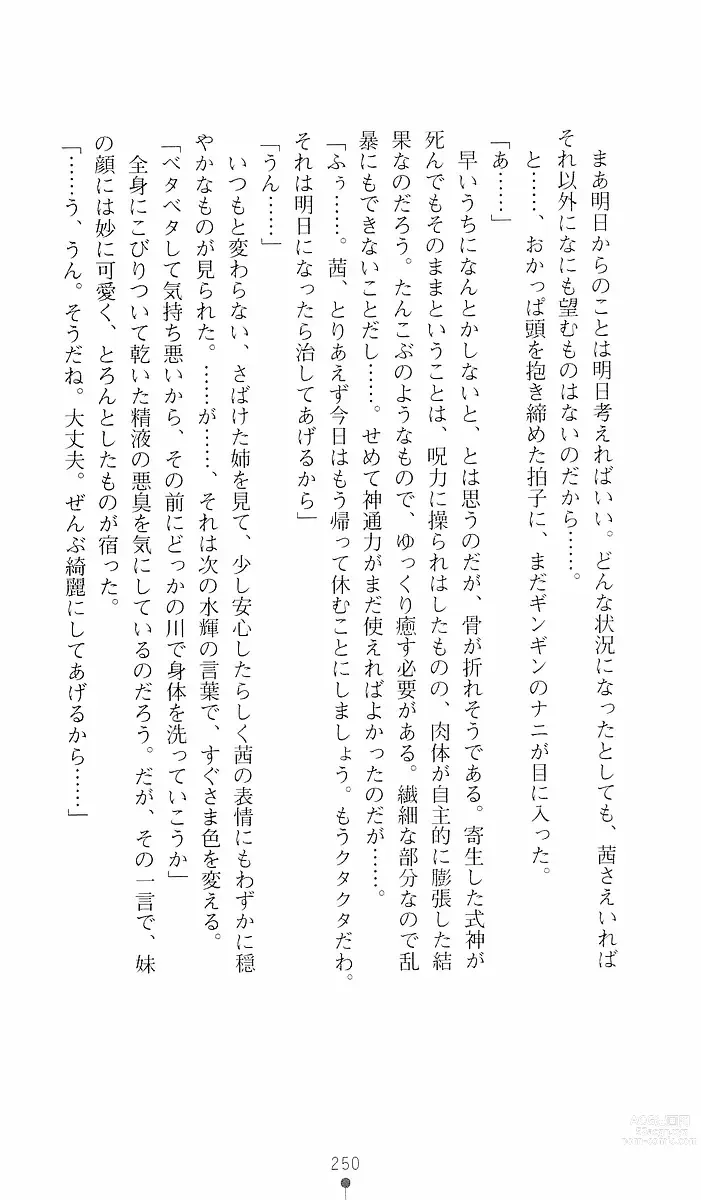 まあ明日からのことは明日考えればいい。どんな状況になったとしても、茜さえいれば
それ以外になにも望むものはないのだから……。
と……、おかっぱ頭を抱き締めた拍子に、まだギンギンのナニが目に入った。
「あ……」
早いうちになんとかしないと、とは思うのだが、骨が折れそうである。寄生した式神が
死んでもそのままということは、呪力に操られはしたものの、肉体が自主的に膨張した結
果なのだろう。たんこぶのようなもので、ゆっくり癒す必要がある。繊細な部分なので乱
暴にもできないことだし……。せめて神通力がまだ使えればよかったのだが……。
「ふぅ……。茜、とりあえず今日はもう帰って休むことにしましょう。もうクタクタだわ。
それは明日になったら治してあげるから」
「うん……」
いつもと変わらない、さばけた姉を見て、少し安心したらしく茜の表情にもわずかに穏
やかなものが見られた。……が……、それは次の水輝の言葉で、すぐさま色を変える。
「ベタベタして気持ち悪いから、その前にどっかの川で身体を洗っていこうか」
全身にこびりついて乾いた精液の悪臭を気にしているのだろう。だが、その一言で、妹
の顔には妙に可愛く、とろんとしたものが宿った。
「……う、うん。そうだね。大丈夫。ぜんぶ綺麗にしてあげるから……」
250